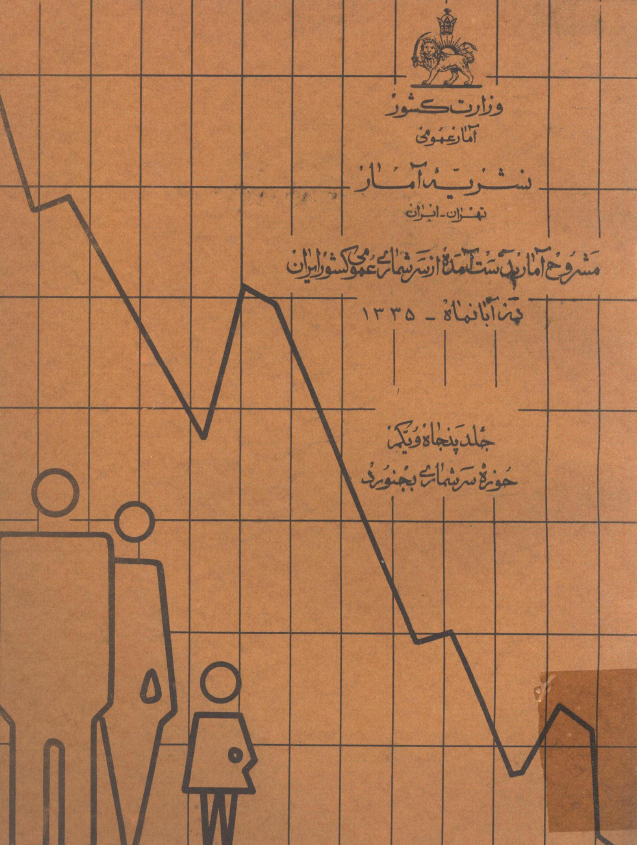 وزارت کشور
آمار عمومی
نشریهٔ آمار
تهران - ایران
مشروح آمار بدست آمده از سرشماری عمومی کشور ایران
در آبانماه - ۱۳۳۵
جلد پنجاه و یکم
حوزه سرشماری بجنورد